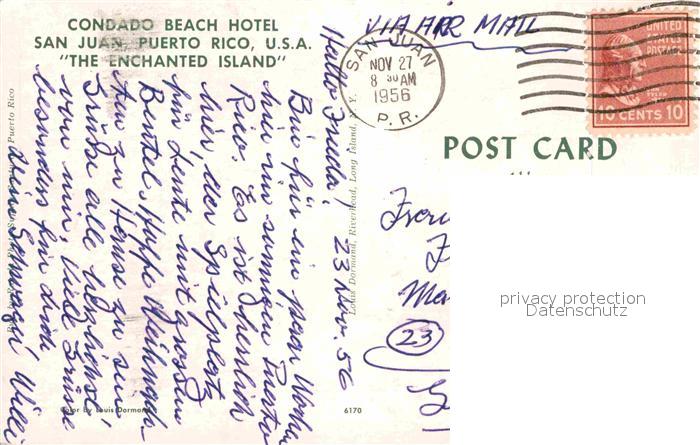 CONDADO BEACH HOTEL
SAN JUAN, PUERTO RICO, U.S.A.
"THE ENCHANTED ISLAND"
VIA AIR MAIL
SAN JUAN
NOV 27
8 30 AM
1956
P. R.
UNITED
STATES
POSTAGE
TYLER
10 CENTS 10
POST CARD
Hallo Frieda! 23 Nov. 56
Bin für ein paar Wochen
hier im sonnigen Puerto
Rico. Es ist herrlich
hier, der Spielplatz
für Leute mit grossem
Beutel. Hoffe Weihnach-
ten zu Hause zu sein.
Grüsse alle herzlichst,
von mir, Viele Grüsse
besonders für dich
Dein Schwager Willi
Louis Dormand, Riverhead, Long Island, N. Y.
Puerto Rico
Color by Louis Dormand
6170
23
privacy protection
Datenschutz